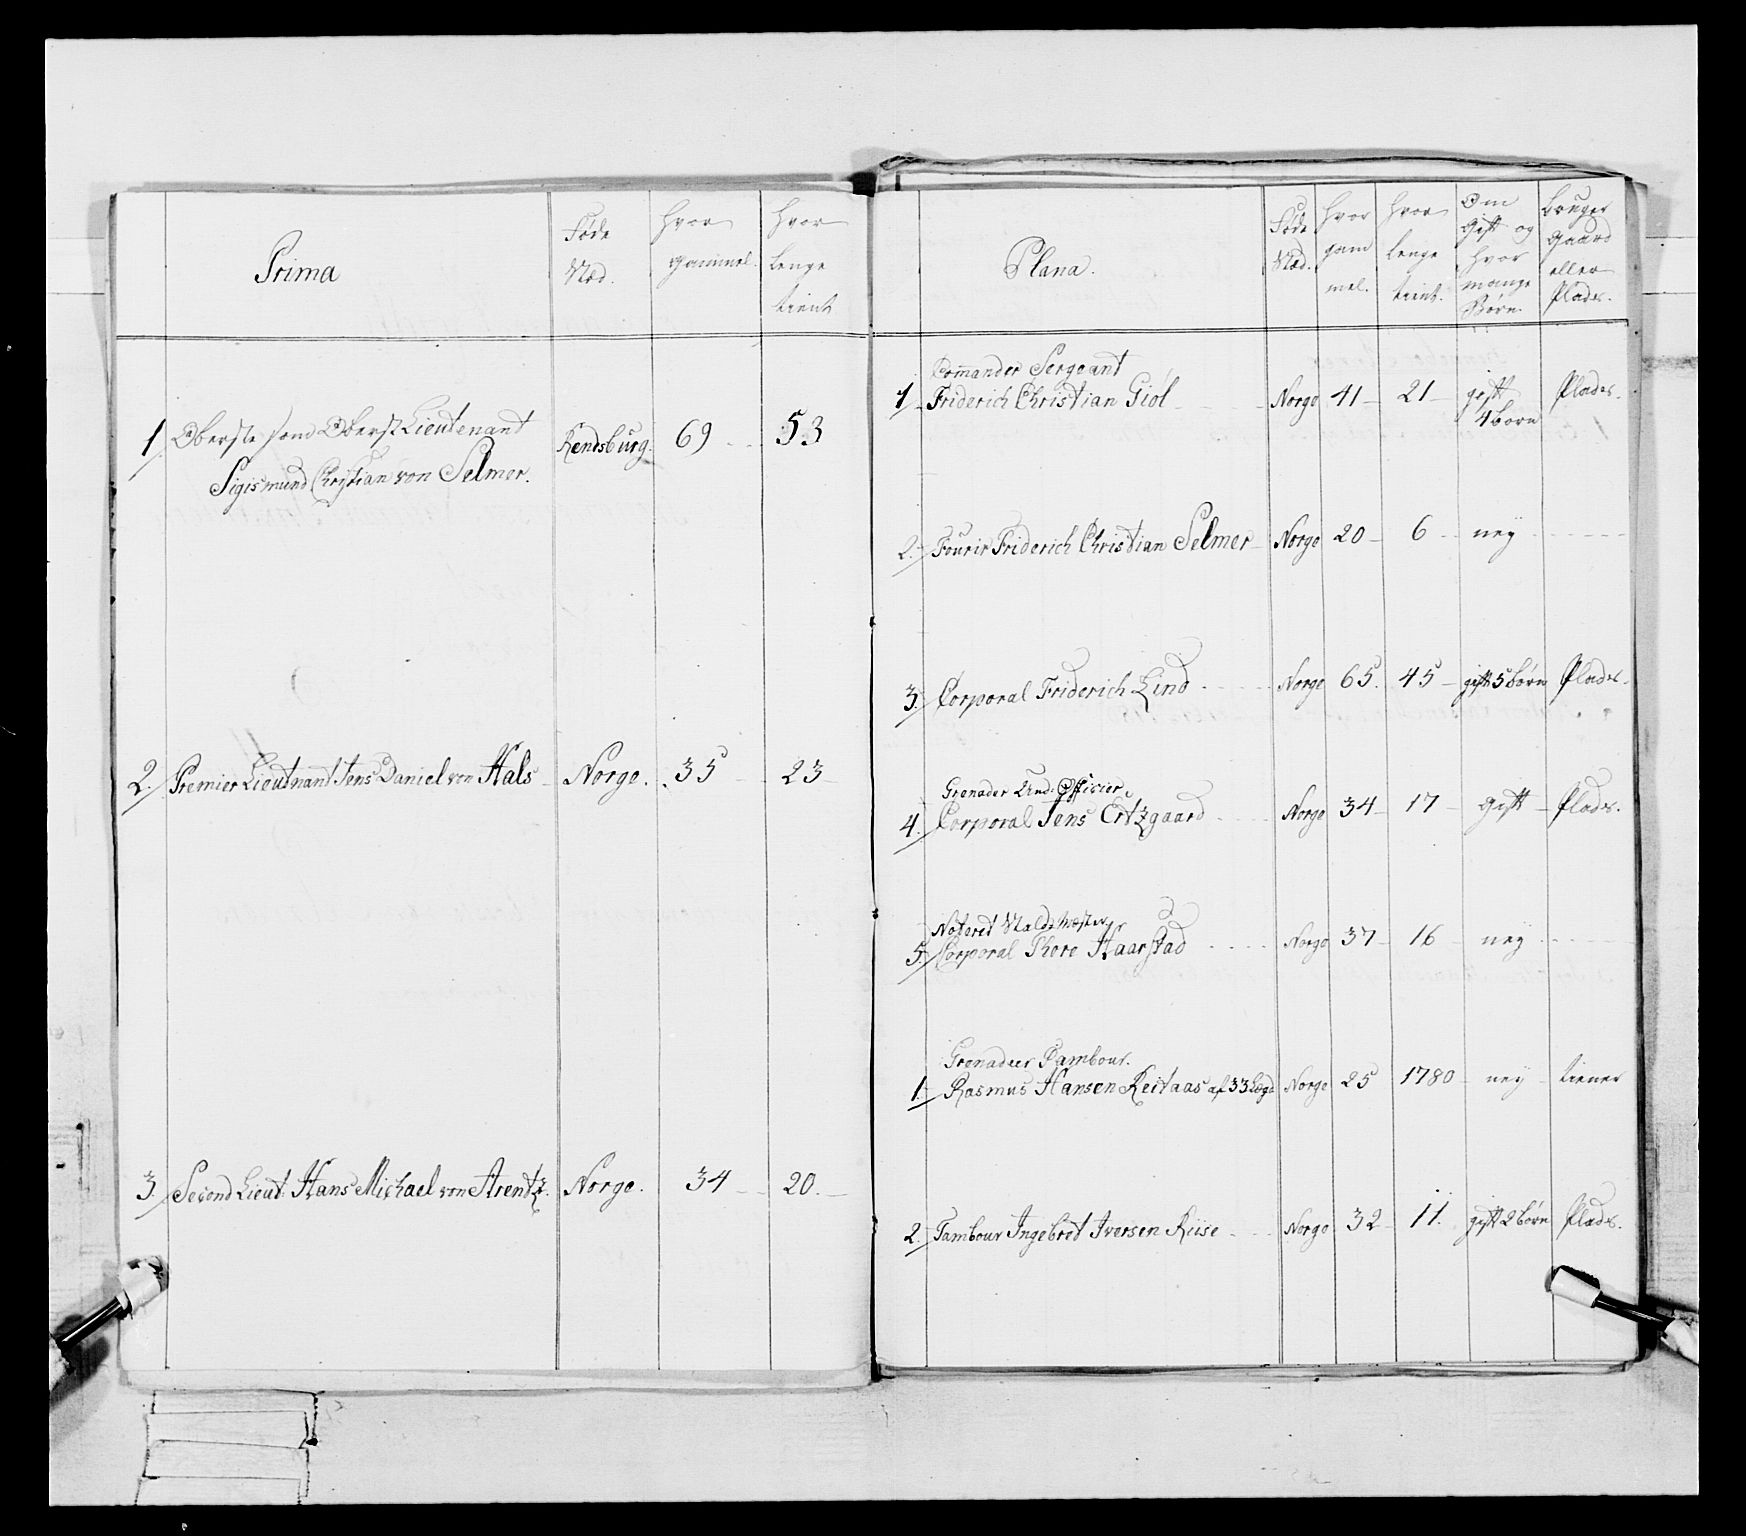 Prima
Føde
Stæd.
hvor
gammel.
hvor
lenge
tient
1 Oberste som Oberst Lieutenant
Sigismund Christian von Selmer. Rendsburg. 69 53
2. Premier Lieutnant Jens Daniel von Hals Norge. 35 23
3. Second Lieut. Hans Michael von Arentz. Norge. 34 20.
Plana.
Føde
Stæd.
hvor
gam
mel.
hvor
lenge
tient.
Om
Gift og
hvor
mange
Børn
bruger
Gaard
eller
Plads.
Commander Sergeant
1 Friderich Christian Giöl Norge 41 21 gift Plads.
4 born
2. Fourir Friderich Christian Selmer Norge 20 6 ney
3. Corporal Friderich Lind Norge 65. 45 gift 5 børn Plads.
Grenader Und: Officier
4. Corporal Jens Ertzgaard Norge 34 17 gift Plads.
Noteret
5. Corporal Thore Haarstad Norge 37 16 ney
Grenadeer Tambour.
1. Rasmus Hansen Reitaas af 33 Lægd Norge 25 1780 ney tiener
2. Tambour Ingebret Iversen Riise Norge 32 11. gift 2 børn Plads.